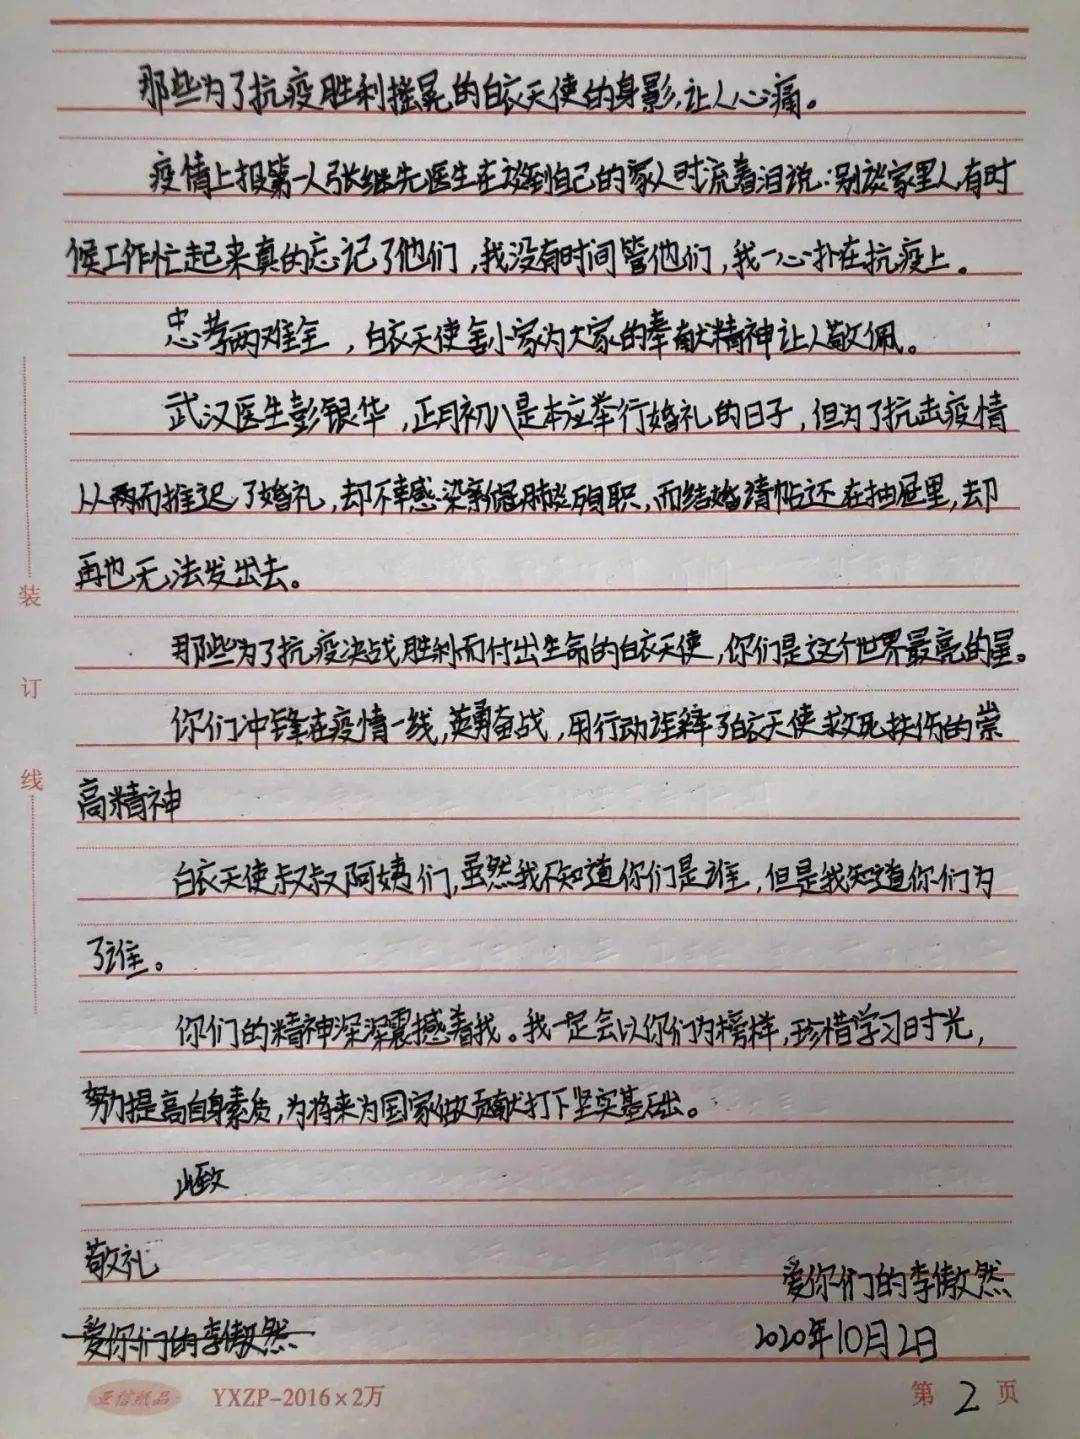 那些为了抗疫胜利摇晃的白衣天使的身影,让人心痛。
疫情上报第一人张继先医生在谈到自己的家人时流着泪说:别谈家里人,有时
候工作忙起来真的忘记了他们,我没有时间管他们,我一心扑在抗疫上。
忠孝两难全,白衣天使舍小家为大家的奉献精神让人敬佩。
武汉医生彭银华,正月初八是本应举行婚礼的日子,但为了抗击疫情
从而推迟了婚礼,却不幸感染新冠肺炎殉职,而结婚请帖还在抽屉里,却
再也无法发出去。
那些为了抗疫决战胜利而付出生命的白衣天使,你们是这个世界最亮的星。
你们冲锋在疫情一线,英勇奋战,用行动诠释了白衣天使救死扶伤的崇
高精神
白衣天使叔叔阿姨们,虽然我不知道你们是谁,但是我知道你们为
了谁。
你们的精神深深震撼着我。我一定会以你们为榜样,珍惜学习时光,
努力提高自身素质,为将来为国家做贡献打下坚实基础。
此致
敬礼
爱你们的李傲然
爱你们的李傲然
2020年10月2日
装
订
线
亚信纸品 YXZP-2016×2万
第 2 页